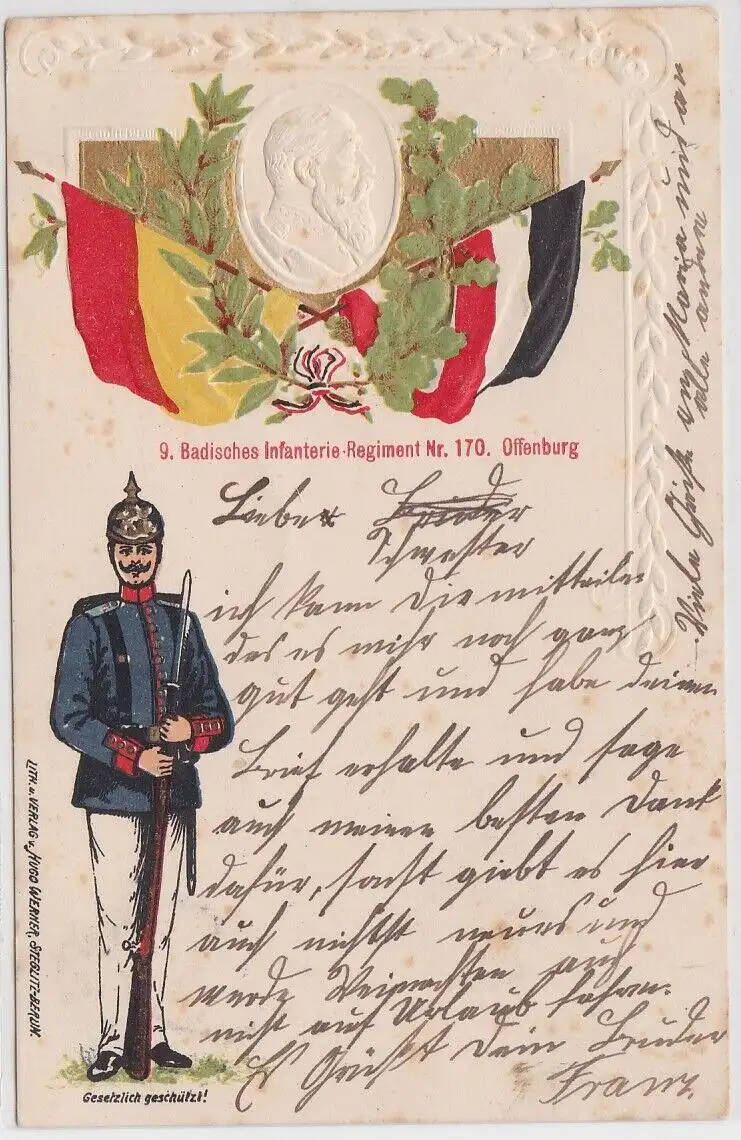 9. Badisches Infanterie-Regiment Nr. 170. Offenburg
Liebe Bruder
Schwester
ich kann Die mitteilen
das es mihr noch ganz
gut geht und habe deinen
Brief erhalte und sage
auch meinen besten Dank
dafür, sonst giebt es hier
auch nichtst neues und
werde Weinachten auch
nicht auf Urlaub fahren.
Es Grüßt Dein Bruder
Franz.
Viele Grüße an Maria und an
alle andere
LITH. u. VERLAG v. HUGO WERNER, STEGLITZ-BERLIN.
Gesetzlich geschützt!